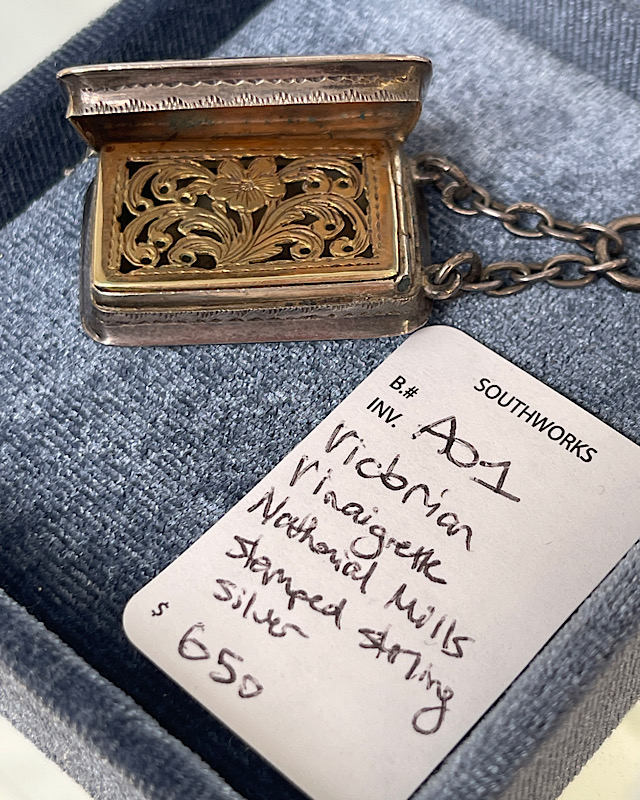 SOUTHWORKS
B.#
INV. A01
Victorian
Vinaigrette
Nathanial Mills
stamped sterling
silver
$ 650